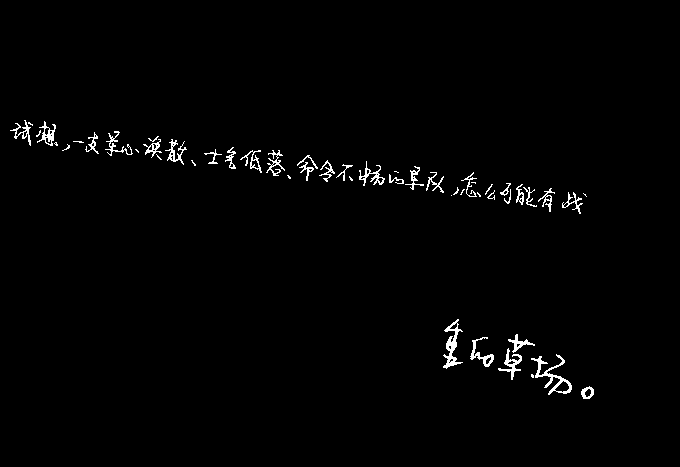 试想,一支军心涣散、士气低落、命令不畅的军队,怎么可能有战
的草场。